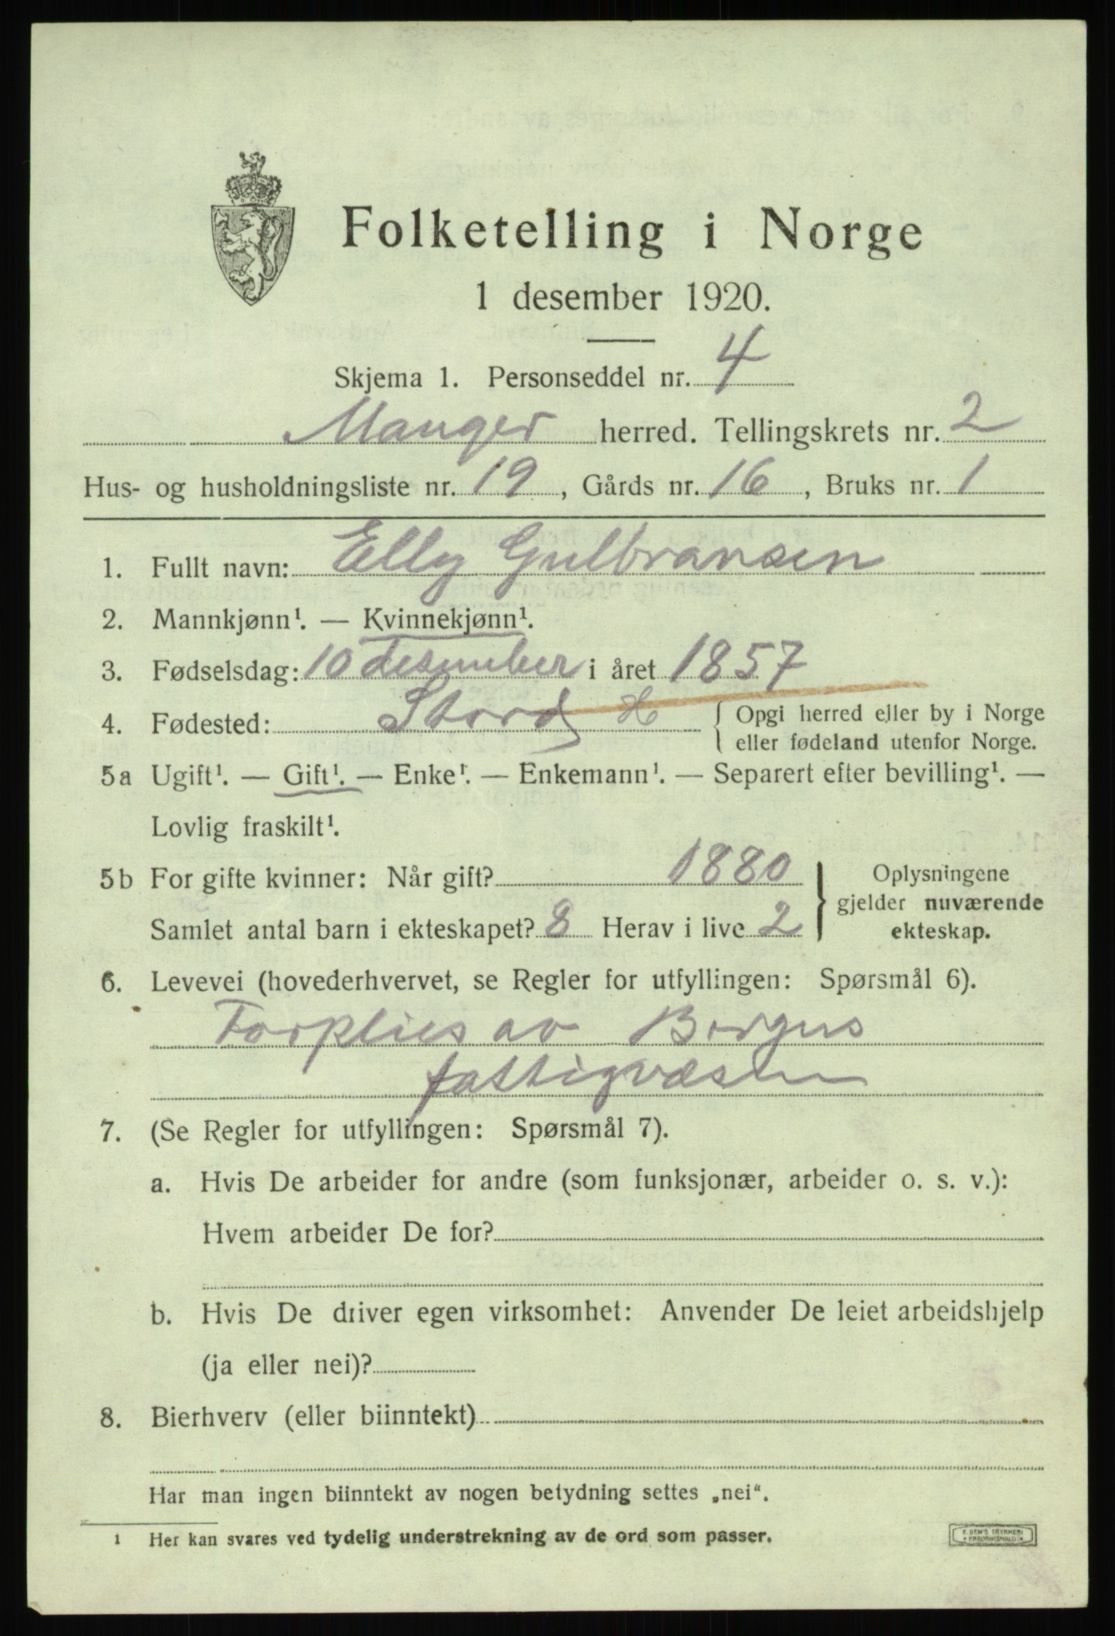 Folketelling i Norge
1 desember 1920.
Skjema 1. Personseddel nr. 4
Manger herred. Tellingskrets nr. 2
Hus- og husholdningsliste nr. 19, Gårds nr. 16, Bruks nr. 1
1. Fullt navn: Elly Gulbransen
2. Mannkjønn¹. — Kvinnekjønn¹.
3. Fødselsdag: 10 desember i året 1857
4. Fødested: Stord H { Opgi herred eller by i Norge
eller fødeland utenfor Norge.
5a Ugift¹. — Gift¹. — Enke¹. — Enkemann¹. — Separert efter bevilling¹. —
Lovlig fraskilt¹.
5b For gifte kvinner: Når gift? 1880
Samlet antal barn i ekteskapet? 8 Herav i live 2
} Oplysningene
gjelder nuværende
ekteskap.
6. Levevei (hovederhvervet, se Regler for utfyllingen: Spørsmål 6).
Forplies av Bergus
fattigvæsen
7. (Se Regler for utfyllingen: Spørsmål 7).
a. Hvis De arbeider for andre (som funksjonær, arbeider o. s. v.):
Hvem arbeider De for?
b. Hvis De driver egen virksomhet: Anvender De leiet arbeidshjelp
(ja eller nei)?
8. Bierhverv (eller biinntekt)
Har man ingen biinntekt av nogen betydning settes „nei“.
¹ Her kan svares ved tydelig understrekning av de ord som passer.